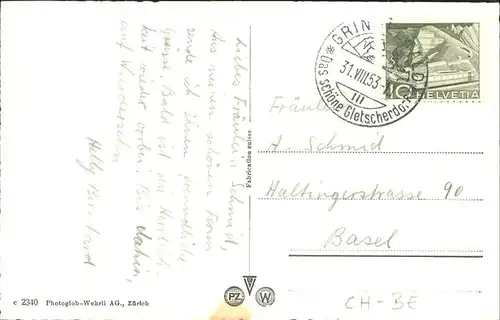 Liebes Fräulein Schmid,
Aus meinen schönen Ferien
sende ich Ihnen freundliche
Grüsse. Bald ist die Herrlich-
keit wieder vorbei. Bis dahin,
auf Wiedersehn
Helly
Fabrication suisse
GRIN
31.VIII.53
III
* Das schöne Gletscherdorf
10
HELVETIA
Fräulein
A. Schmid
Haltingerstrasse 90
Basel
c 2340 Photoglob-Wehrli AG., Zürich
PZ W
CH-BE